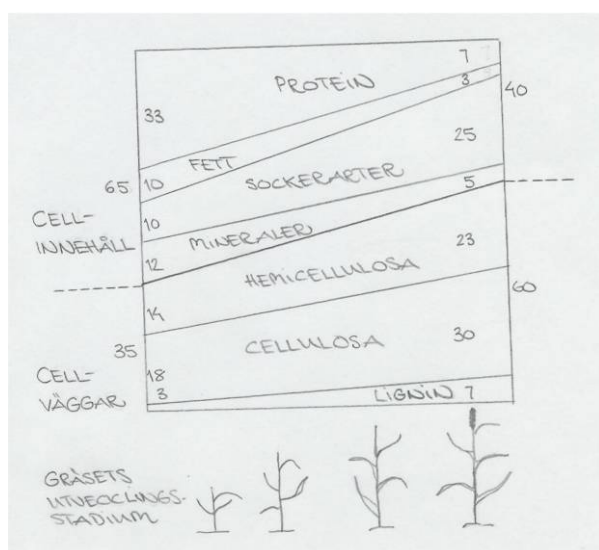 7
PROTEIN
3
40
33
FETT
25
65
10
SOCKERARTER
5
CELL-
INNEHÅLL
10
MINERALER
12
23
HEMICELLULOSA
14
60
35
CELLULOSA
30
CELL-
VÄGGAR
18
3
LIGNIN 7
GRÄSETS
UTVECKLINGS-
STADIUM